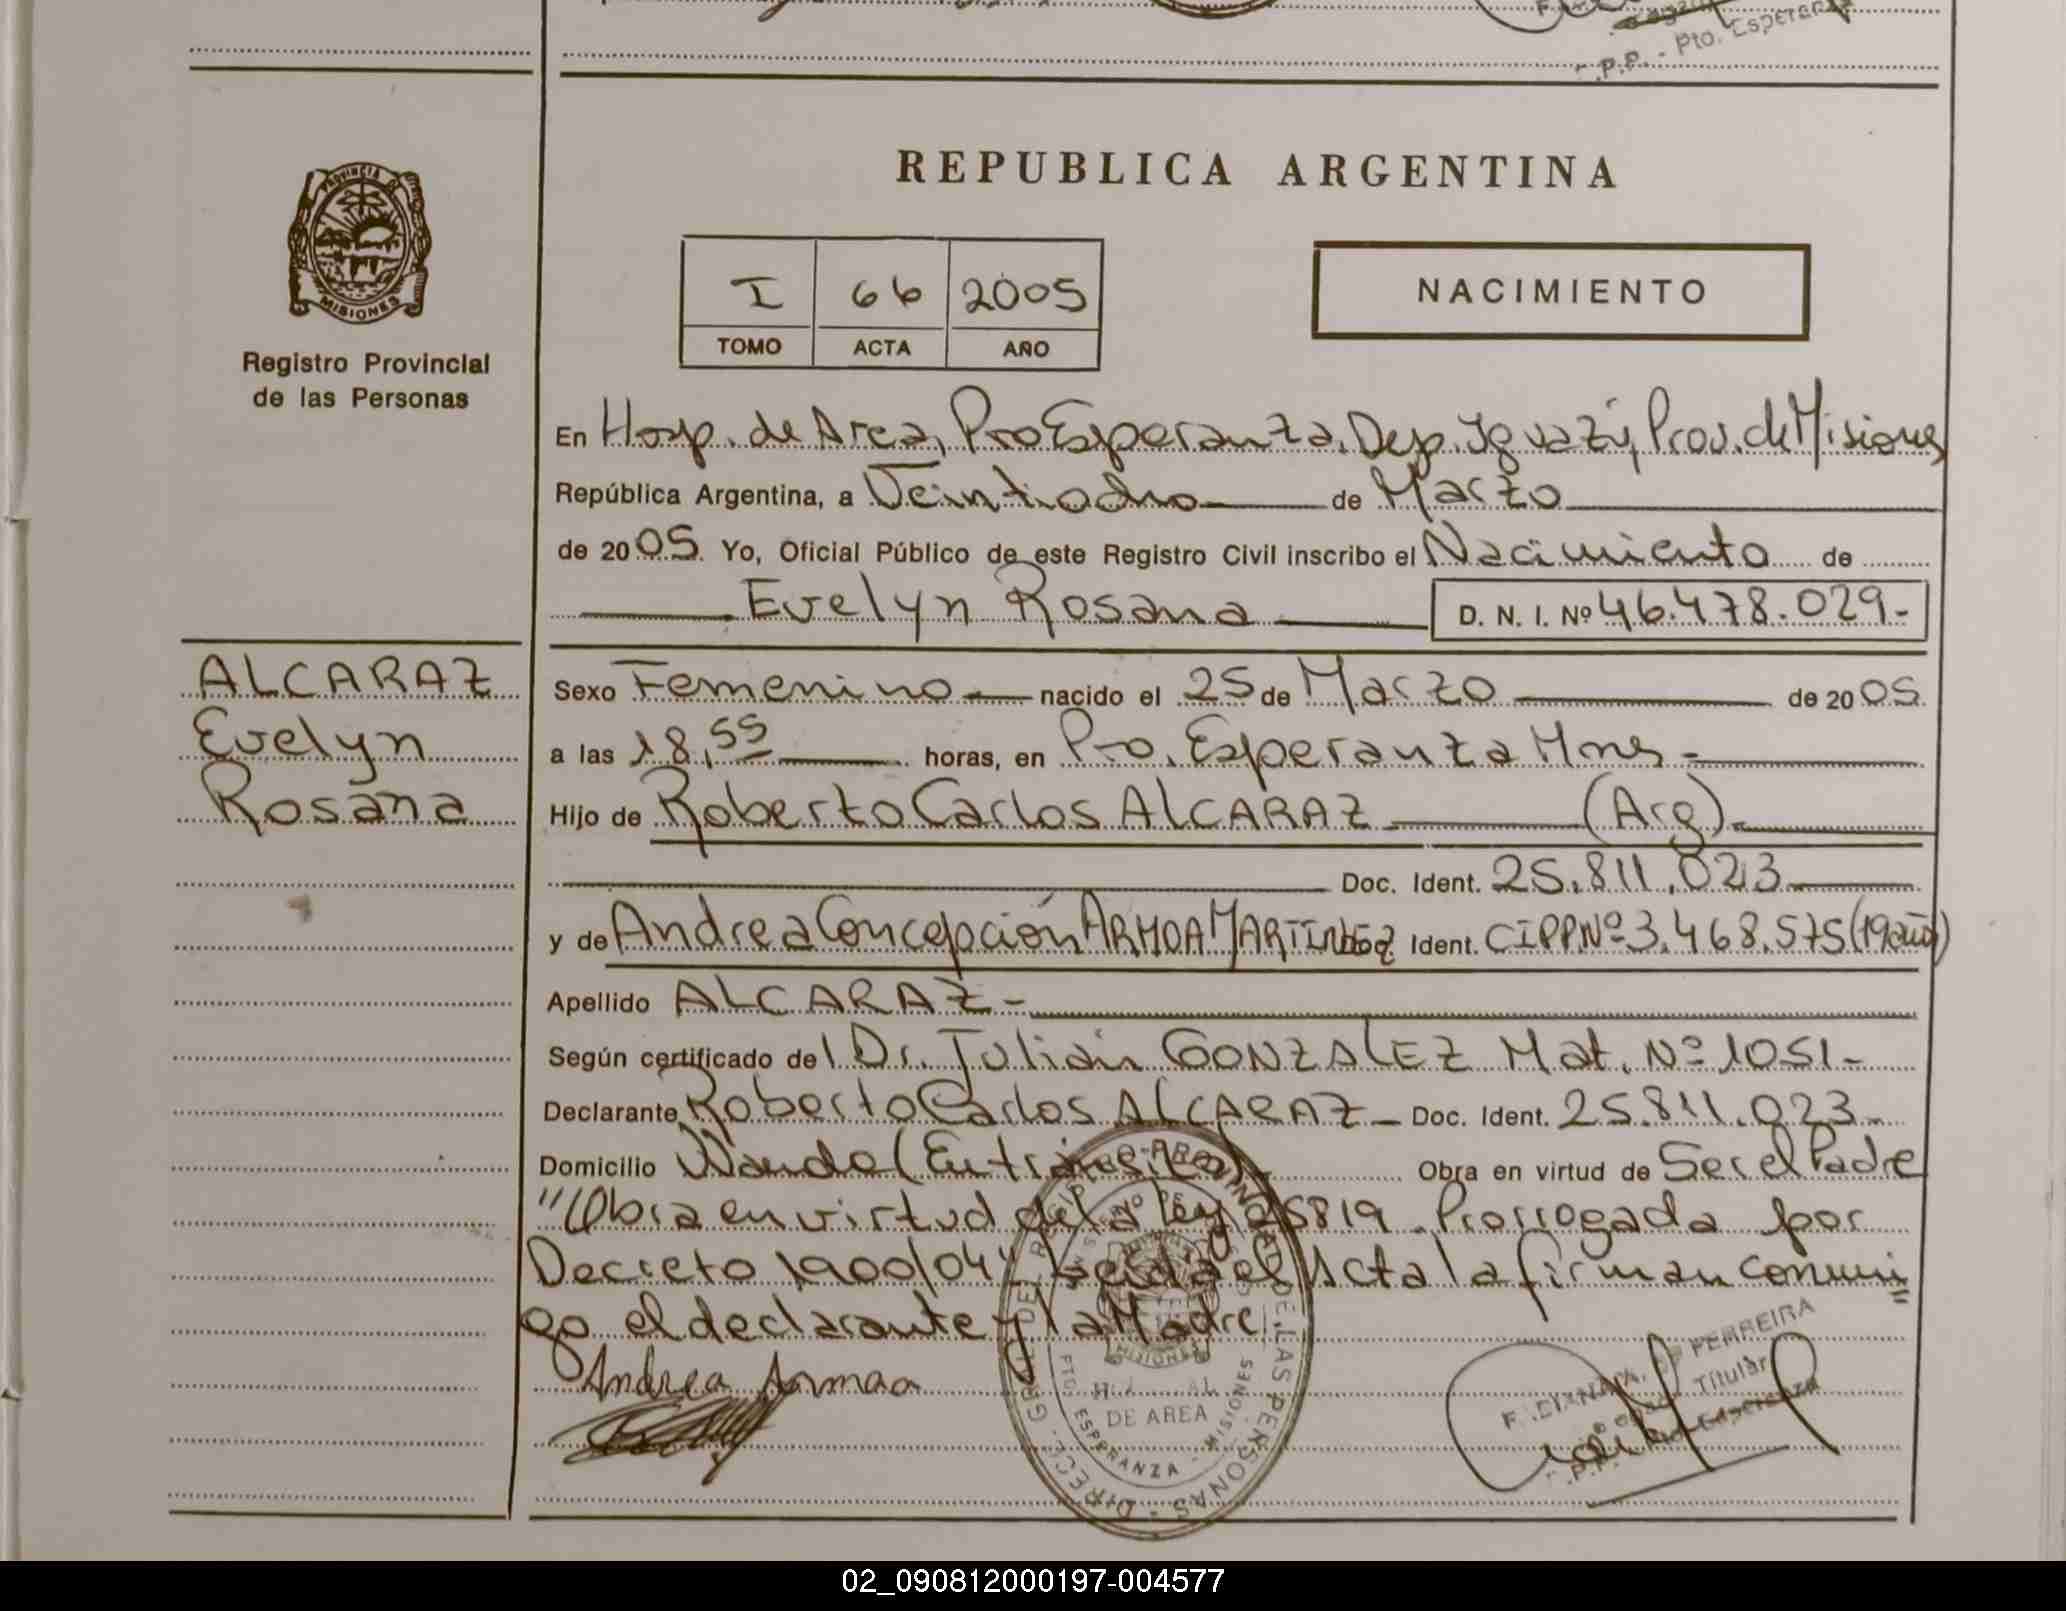 Pto. Esperanza
REPUBLICA ARGENTINA
PROVINCIA DE
MISIONES
Registro Provincial
de las Personas
I 66 2005
TOMO ACTA AÑO
NACIMIENTO
En Hosp. de Area, Pto Esperanza, Dep. Iguazú, Prov. de Misiones
República Argentina, a Veintiocho de Marzo
de 2005. Yo, Oficial Público de este Registro Civil inscribo el Nacimiento de
Evelyn Rosana D. N. I. Nº 46.478.029-
ALCARAZ
Evelyn
Rosana
Sexo Femenino nacido el 25 de Marzo de 2005
a las 18,55 horas, en Pto. Esperanza Mnes-
Hijo de Roberto Carlos ALCARAZ (Arg).
Doc. Ident. 25.811.023
y de Andrea Concepción ARMOA MARTINEZ Doc. Ident. CIPPNº 3.468.575 (19 años)
Apellido ALCARAZ-
Según certificado del Dr. Julián GONZALEZ Mat. Nº 1051-
Declarante Roberto Carlos ALCARAZ Doc. Ident. 25.811.023-
Domicilio Wanda Obra en virtud de Ser el Padre
"Obra en virtud de la Ley 25819 Prorrogada por
Decreto 1900/04" Leída el Acta la firman conmi
go el declarante y la Madre
Andrea Armoa
DIRECC. GRAL. DEL REGISTRO PROVINCIAL DE LAS PERSONAS
DE AREA
PTO. ESPERANZA - MISIONES
FERREIRA
Titular
02_090812000197-004577